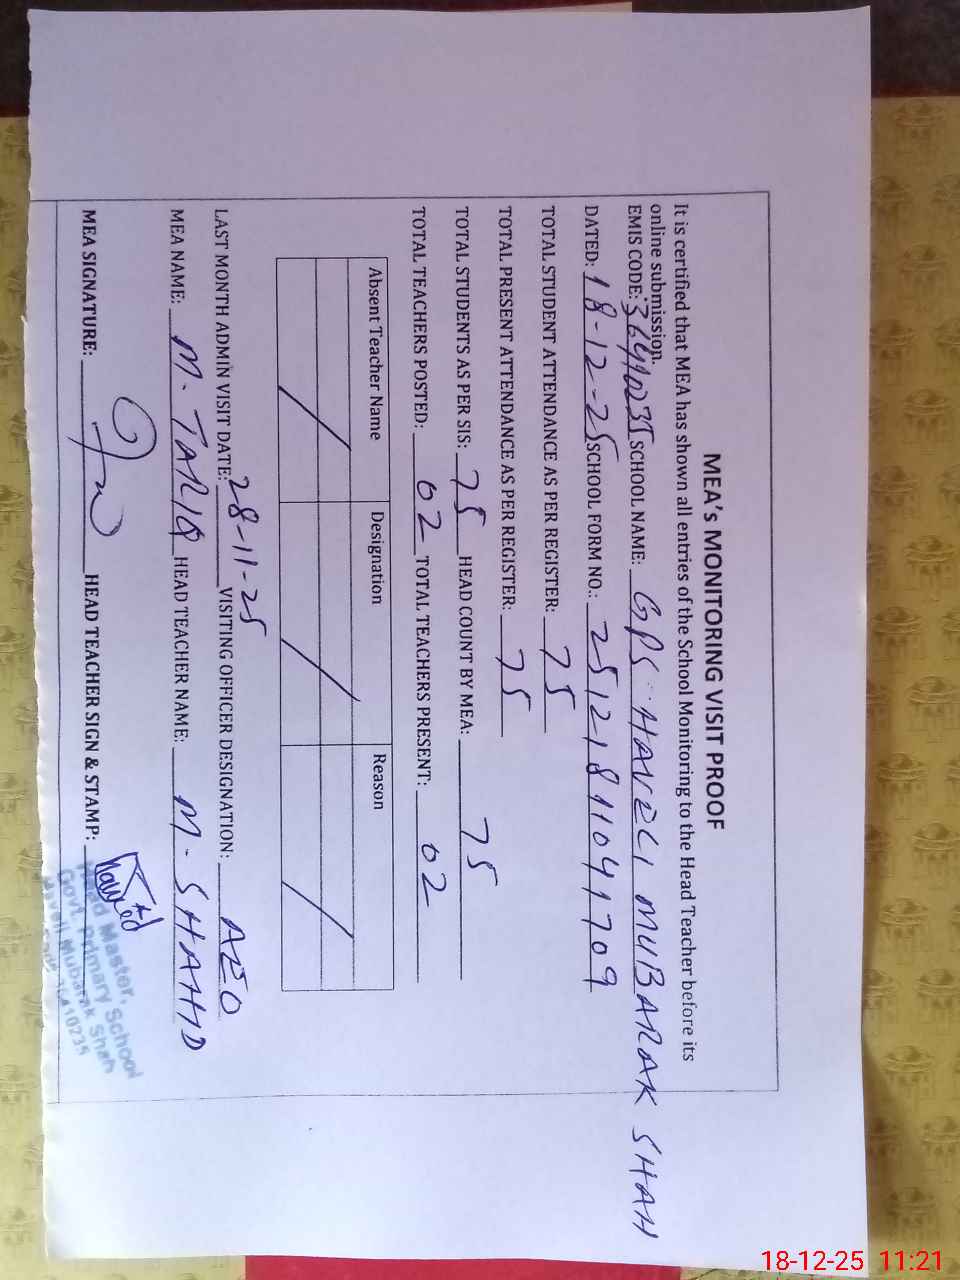 MEA's MONITORING VISIT PROOF
It is certified that MEA has shown all entries of the School Monitoring to the Head Teacher before its
online submission.
EMIS CODE: 36410235 SCHOOL NAME: GPS HAVELI MUBARAK SHAH
DATED: 18-12-25 SCHOOL FORM NO.: 25121811041709
TOTAL STUDENT ATTENDANCE AS PER REGISTER: 75
TOTAL PRESENT ATTENDANCE AS PER REGISTER: 75
TOTAL STUDENTS AS PER SIS: 75 HEAD COUNT BY MEA: 75
TOTAL TEACHERS POSTED: 02 TOTAL TEACHERS PRESENT: 02
Absent Teacher Name Designation Reason
LAST MONTH ADMIN VISIT DATE: 28-11-25 VISITING OFFICER DESIGNATION: AEO
MEA NAME: M. TARIQ HEAD TEACHER NAME: M. SHAHID
MEA SIGNATURE: HEAD TEACHER SIGN & STAMP:
Head Master,
Govt. Primary School
Haveli Mubarak Shah
36410235
18-12-25 11:21